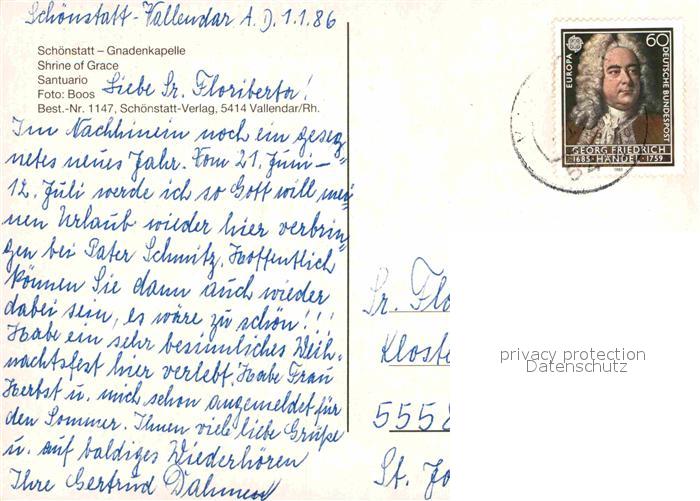 Schönstatt-Vallendar A. D. 1.1.86
Schönstatt – Gnadenkapelle
Shrine of Grace
Santuario
Foto: Boos
Best.-Nr. 1147, Schönstatt-Verlag, 5414 Vallendar/Rh.
Liebe Sr. Floriberta!
Im Nachhinein noch ein geseg-
netes neues Jahr. Vom 21. Juni –
12. Juli werde ich so Gott will mei-
nen Urlaub wieder hier verbrin-
gen bei Pater Schmitz. Hoffentlich
können Sie dann auch wieder
dabei sein, es wäre zu schön!!!
Habe ein sehr besinnliches Weih-
nachtsfest hier verlebt. Habe Frau
Herbst u. mich schon angemeldet für
den Sommer. Ihnen viele liebe Grüße
u. auf baldiges Wiederhören
Ihre Gertrud Dahmen
EUROPA
60
DEUTSCHE BUNDESPOST
GEORG FRIEDRICH
1685 HÄNDEL 1759
Sr. Flo
Kloste
5558
St. Jo
privacy protection
Datenschutz